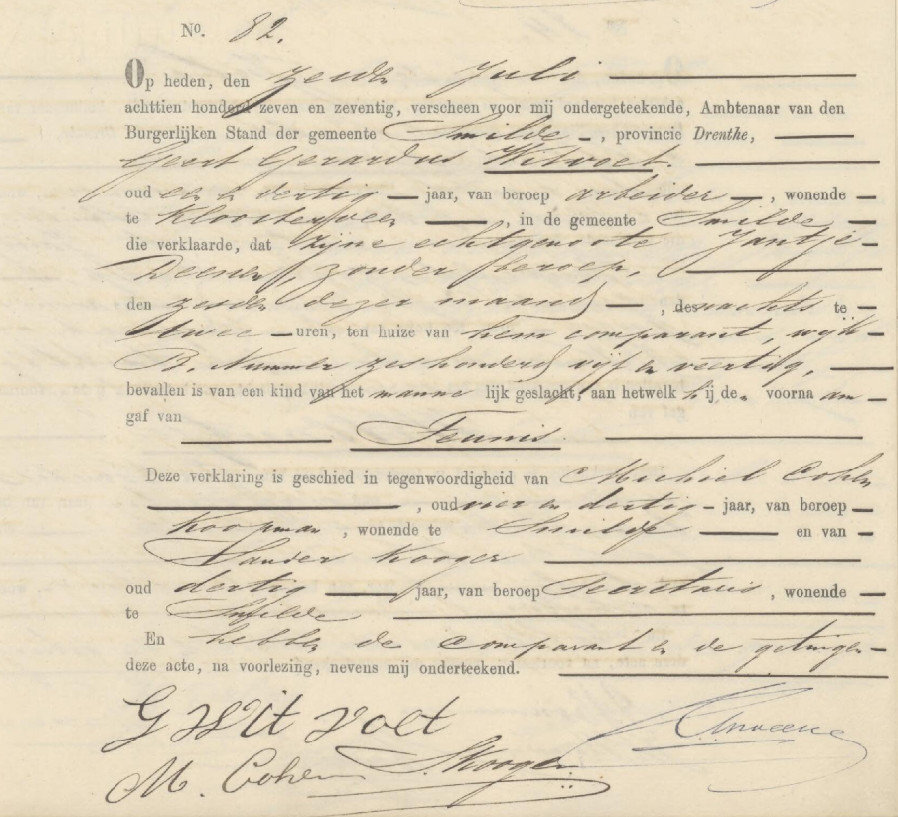 No. 82.
Op heden, den zesden Juli
achttien honderd zeven en zeventig, verscheen voor mij ondergeteekende, Ambtenaar van den
Burgerlijken Stand der gemeente Smilde, provincie Drenthe,
Geert Gerardus Witvoet.
oud een en dertig jaar, van beroep arbeider, wonende
te Kloosterveen, in de gemeente Smilde
die verklaarde, dat zijne echtgenoote Jantje
zonder beroep,
den zesden dezer maand, des nachts te
twee uren, ten huize van hem comparant, wijk
B. Nummer zeshonderd vijf en veertig,
bevallen is van een kind van het manne lijk geslacht, aan hetwelk hij de voorna am
gaf van
Teunis.
Deze verklaring is geschied in tegenwoordigheid van Michiel Cohen
, oud vier en dertig jaar, van beroep
Koopman, wonende te Smilde en van
Sander Kooger
oud dertig jaar, van beroep Secretaris, wonende
te Smilde
En hebben de comparant en de getuigen
deze acte, na voorlezing, nevens mij onderteekend.
G Witvoet
M. Cohen S Kooger